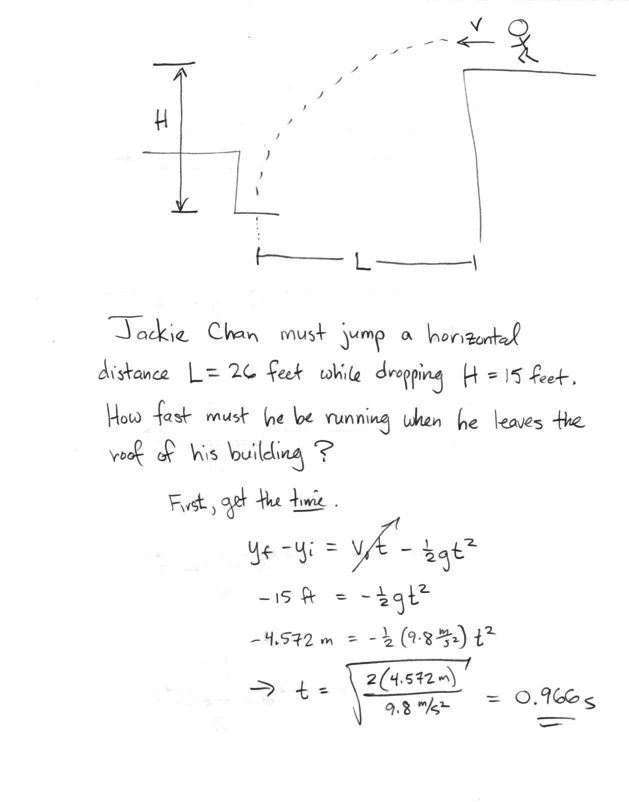 V
H
L
Jackie Chan must jump a horizontal
distance L = 26 feet while dropping H = 15 feet.
How fast must he be running when he leaves the
roof of his building?
First, get the time.
yf - yi = v₀t - ½gt²
-15 ft = -½gt²
-4.572 m = -½ (9.8 m/s²) t²
→ t = √(2(4.572 m) / 9.8 m/s²) = 0.966 s